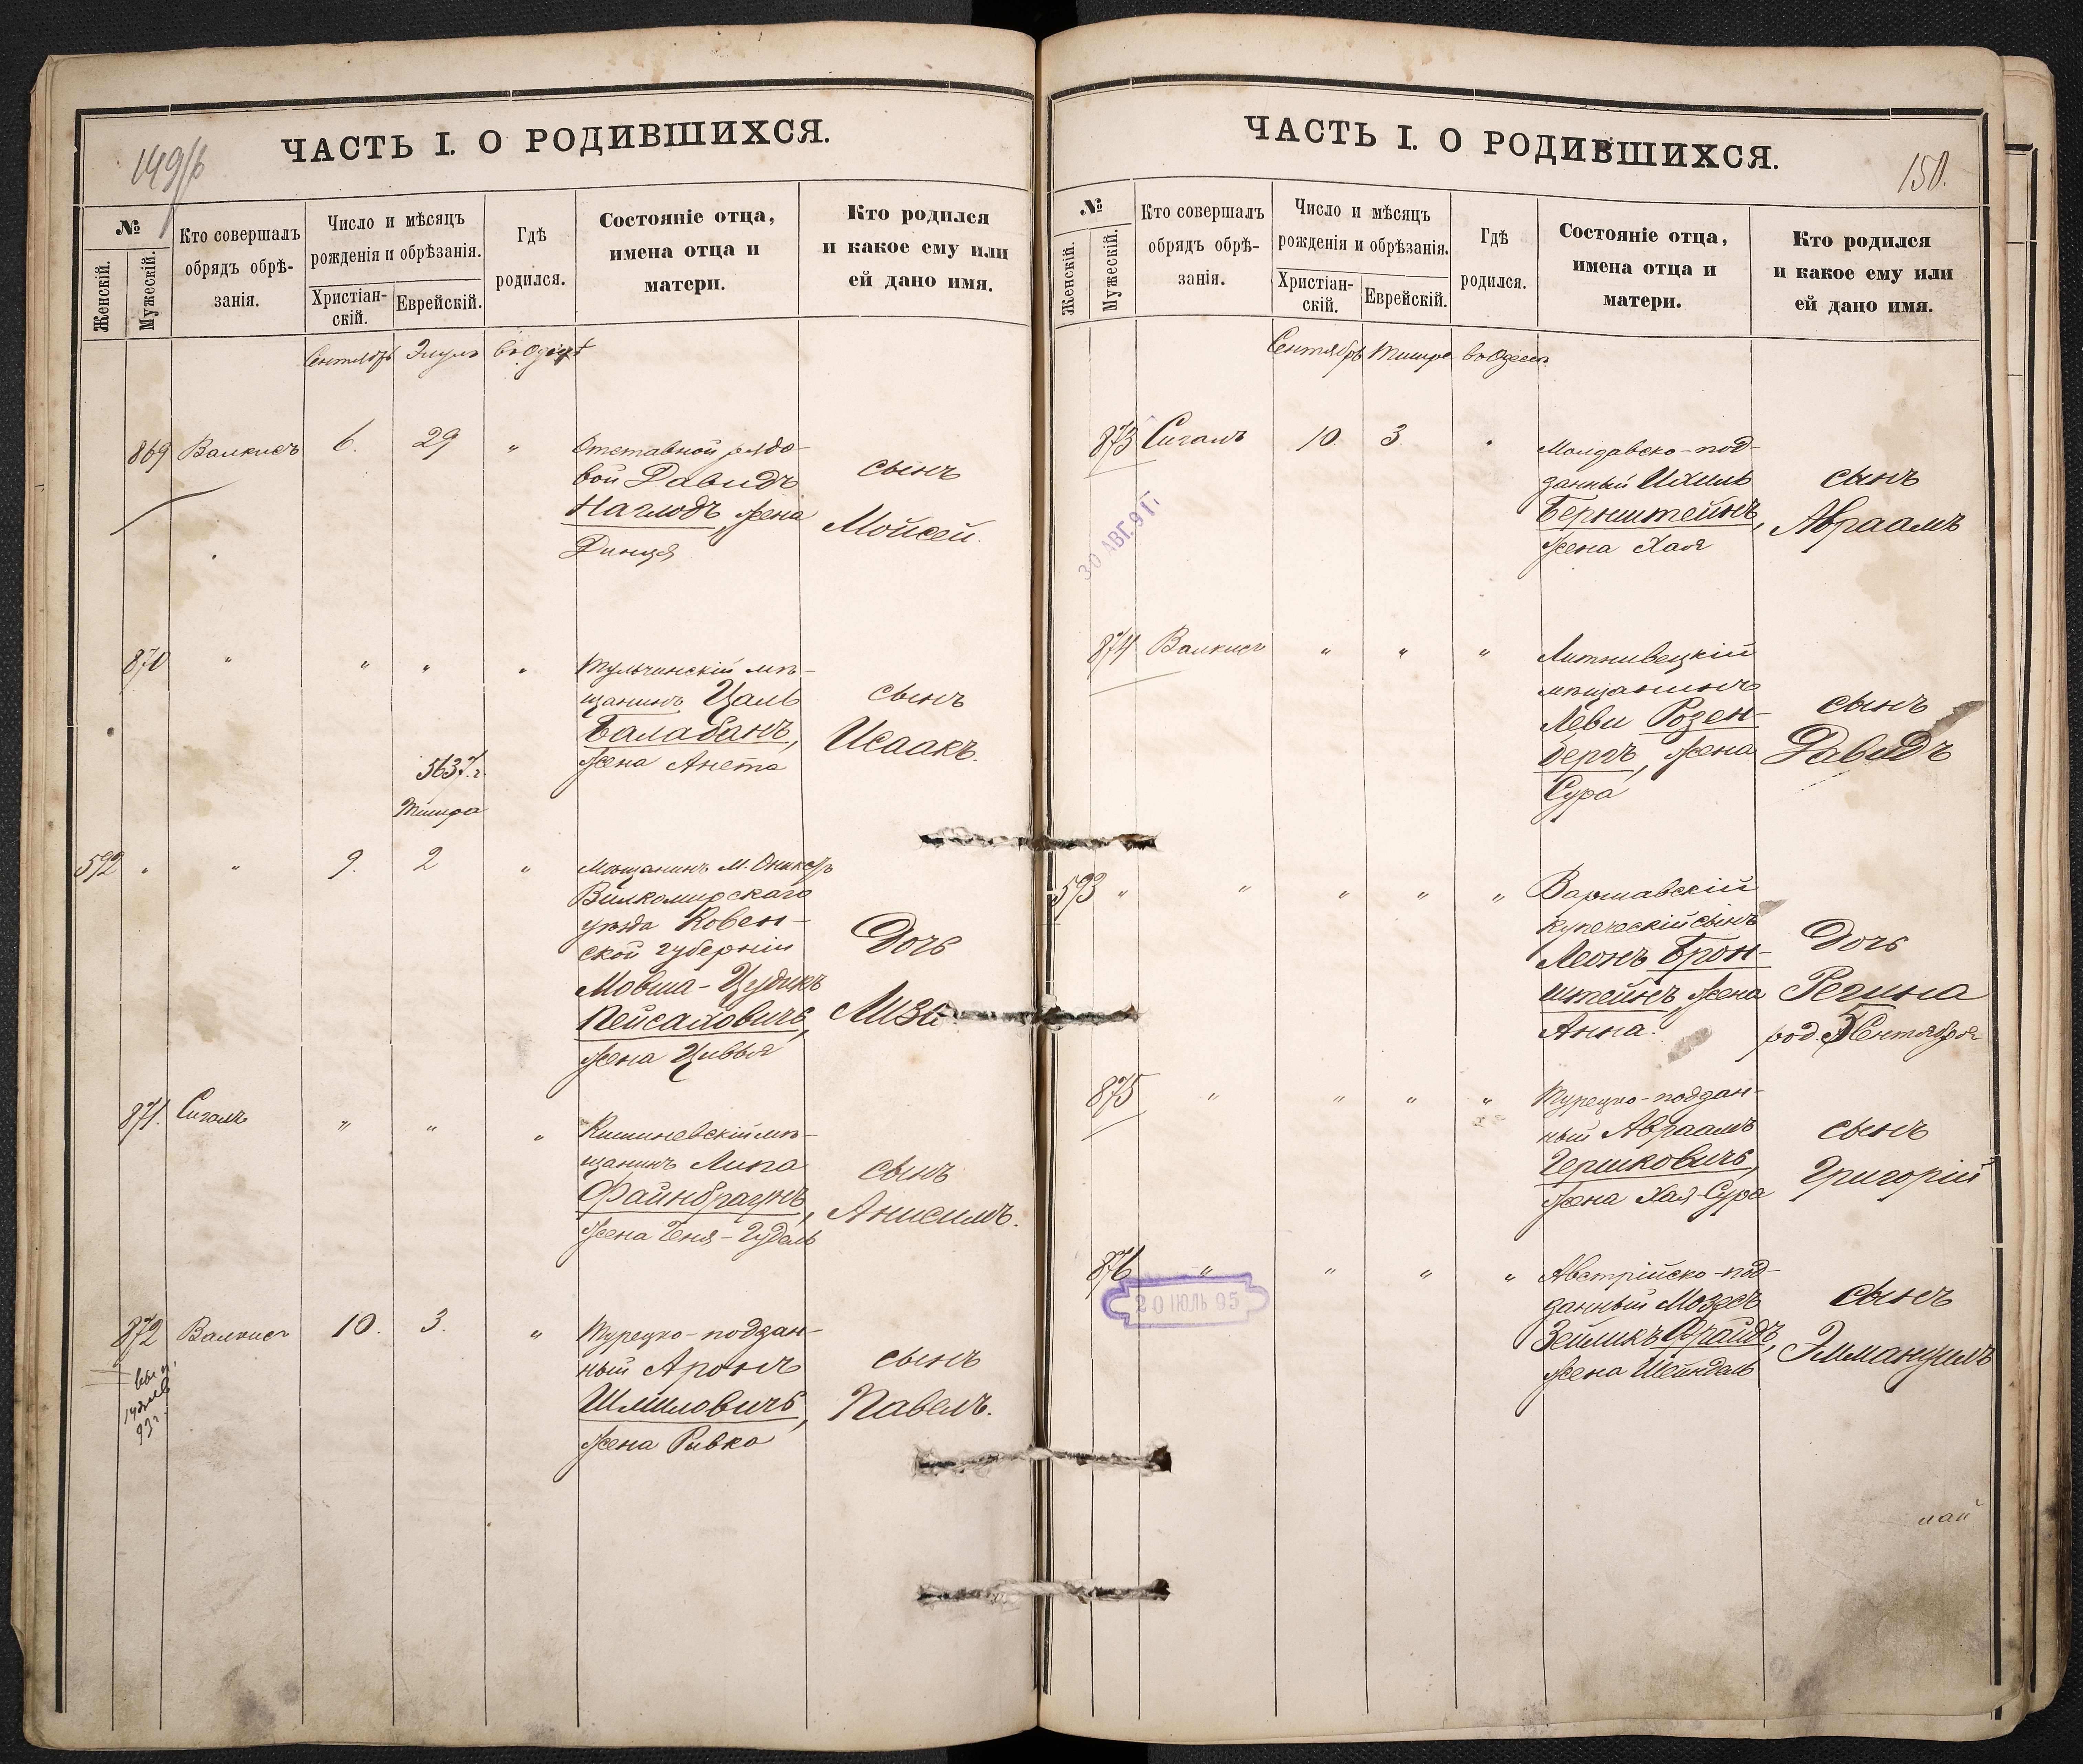 149/б
ЧАСТЬ I. О РОДИВШИХСЯ.
№
Женскій.
Мужескій.
Кто совершалъ
обрядъ обрѣ-
занія.
Число и мѣсяцъ
рожденія и обрѣзанія.
Христіан-
скій.
Еврейскій.
Гдѣ
родился.
Состояніе отца,
имена отца и
матери.
Кто родился
и какое ему или
ей дано имя.
Сентябрь Элулъ въ Одессѣ
869 Валкисъ 6. 29 "
Отставной рядо-
вой Давидъ
Наглодъ, жена
Динця
сынъ
Мойсей.
870 " " " "
Тульчинскій мѣ-
щанинъ Цаль
Балабанъ,
жена Анета
сынъ
Исаакъ.
5637 г.
Тишра
592 " " 9. 2 "
Мѣщанинъ М.
Вилкомирскаго
уѣзда Ковен-
ской губерніи
Мовша-Цудикъ
Пейсаховичъ,
жена Цивья
Дочь
Лиза
871. Сигалъ " " "
Кишиневскій мѣ-
щанинъ Липа
Файнбраунъ,
жена Геня-Гудаль
сынъ
Анисимъ.
872 Валкисъ 10. 3. "
Турецко-поддан-
ный Аронъ
Шмиловичъ,
жена Ривка
сынъ
Павелъ.
93 г.
ЧАСТЬ I. О РОДИВШИХСЯ.
150.
№
Женскій.
Мужескій.
Кто совершалъ
обрядъ обрѣ-
занія.
Число и мѣсяцъ
рожденія и обрѣзанія.
Христіан-
скій.
Еврейскій.
Гдѣ
родился.
Состояніе отца,
имена отца и
матери.
Кто родился
и какое ему или
ей дано имя.
Сентябрь Тишре въ Одессѣ
873 Сигалъ 10. 3. "
Молдавско-под-
данный Ихиль
Бернштейнъ,
жена Хая
сынъ
Авраамъ
30 АВГ. 91 Г.
874 Валкисъ " " "
Литнивецкій
мѣщанинъ
Леви Розен-
бергъ, жена
Сура
сынъ
Давидъ
593 " " " " "
Варшавскій
купеческій сынъ
Леонъ Брон-
штейнъ, жена
Анна.
Дочь
Регина
род. 5 Сентября
875 " " " "
Турецко-поддан-
ный Авраамъ
Гершковичъ,
жена Хая-Сура
сынъ
Григорій
876 " " " "
20 ІЮЛЬ 95
Австрійско-под-
данный Мозесъ
Зейликъ Фрайдъ,
жена Шейндаль
сынъ
Эммануилъ